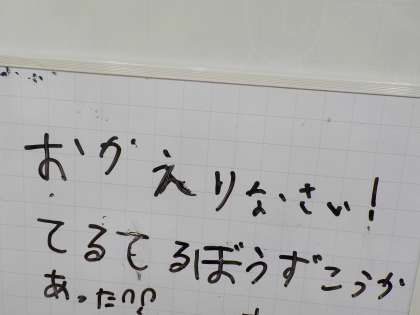 おかえりなさい!
てるてるぼうずこうか
あった